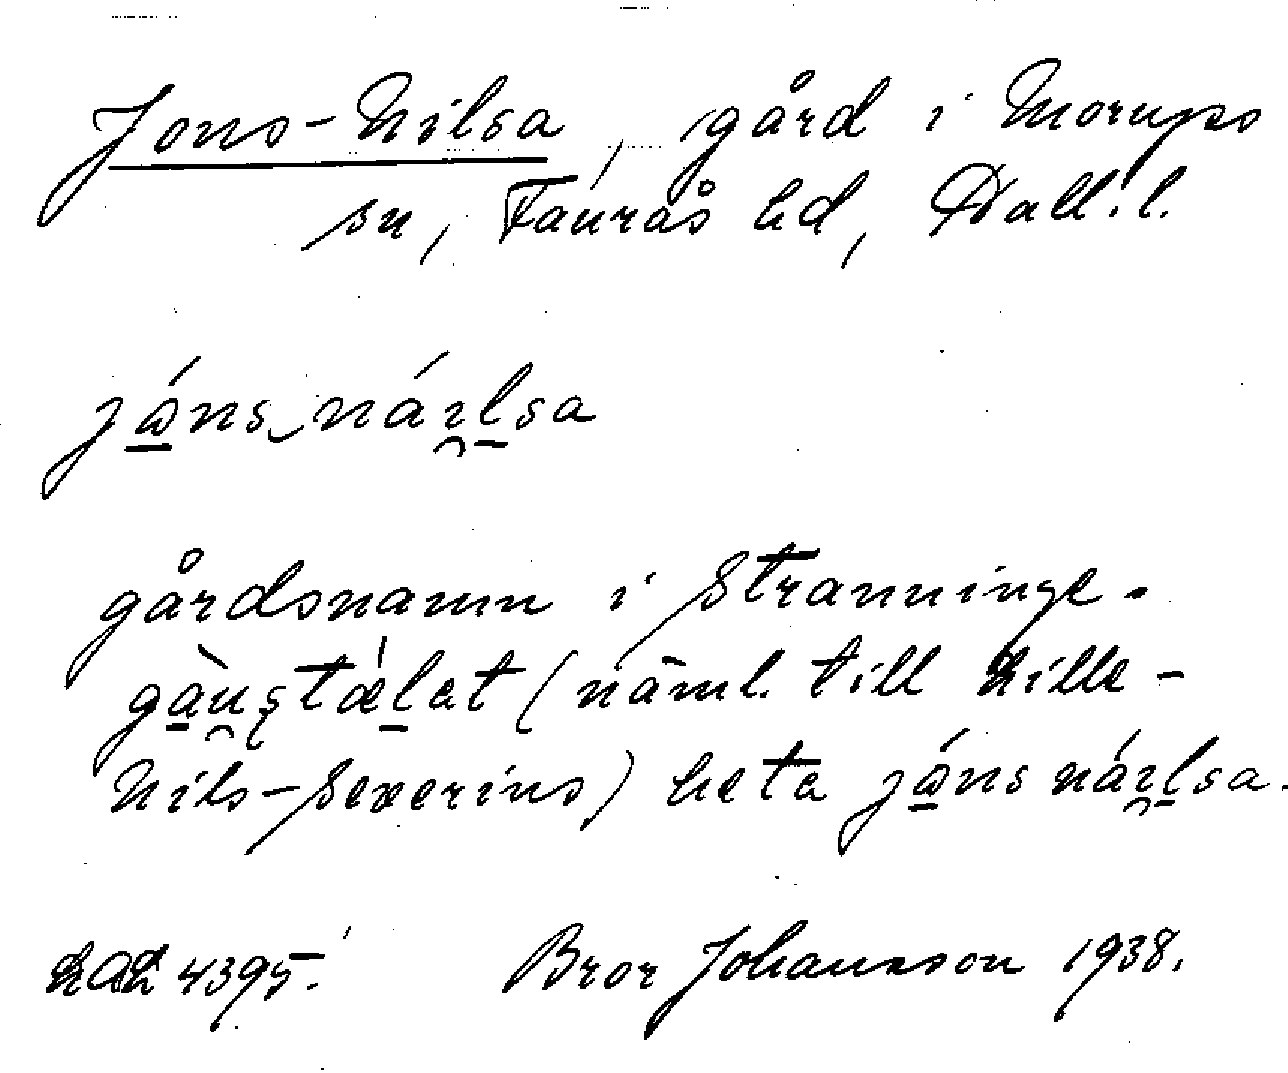 Jons-Nilsa, gård i Morups
sn, Faurås hd, Hall. l.
jǻns nárlsa
gårdsnamn i Stranninge.
(näml. till Lille-
Nils-Severins) heta jǻns nárlsa.
4395. Bror Johansson 1938.